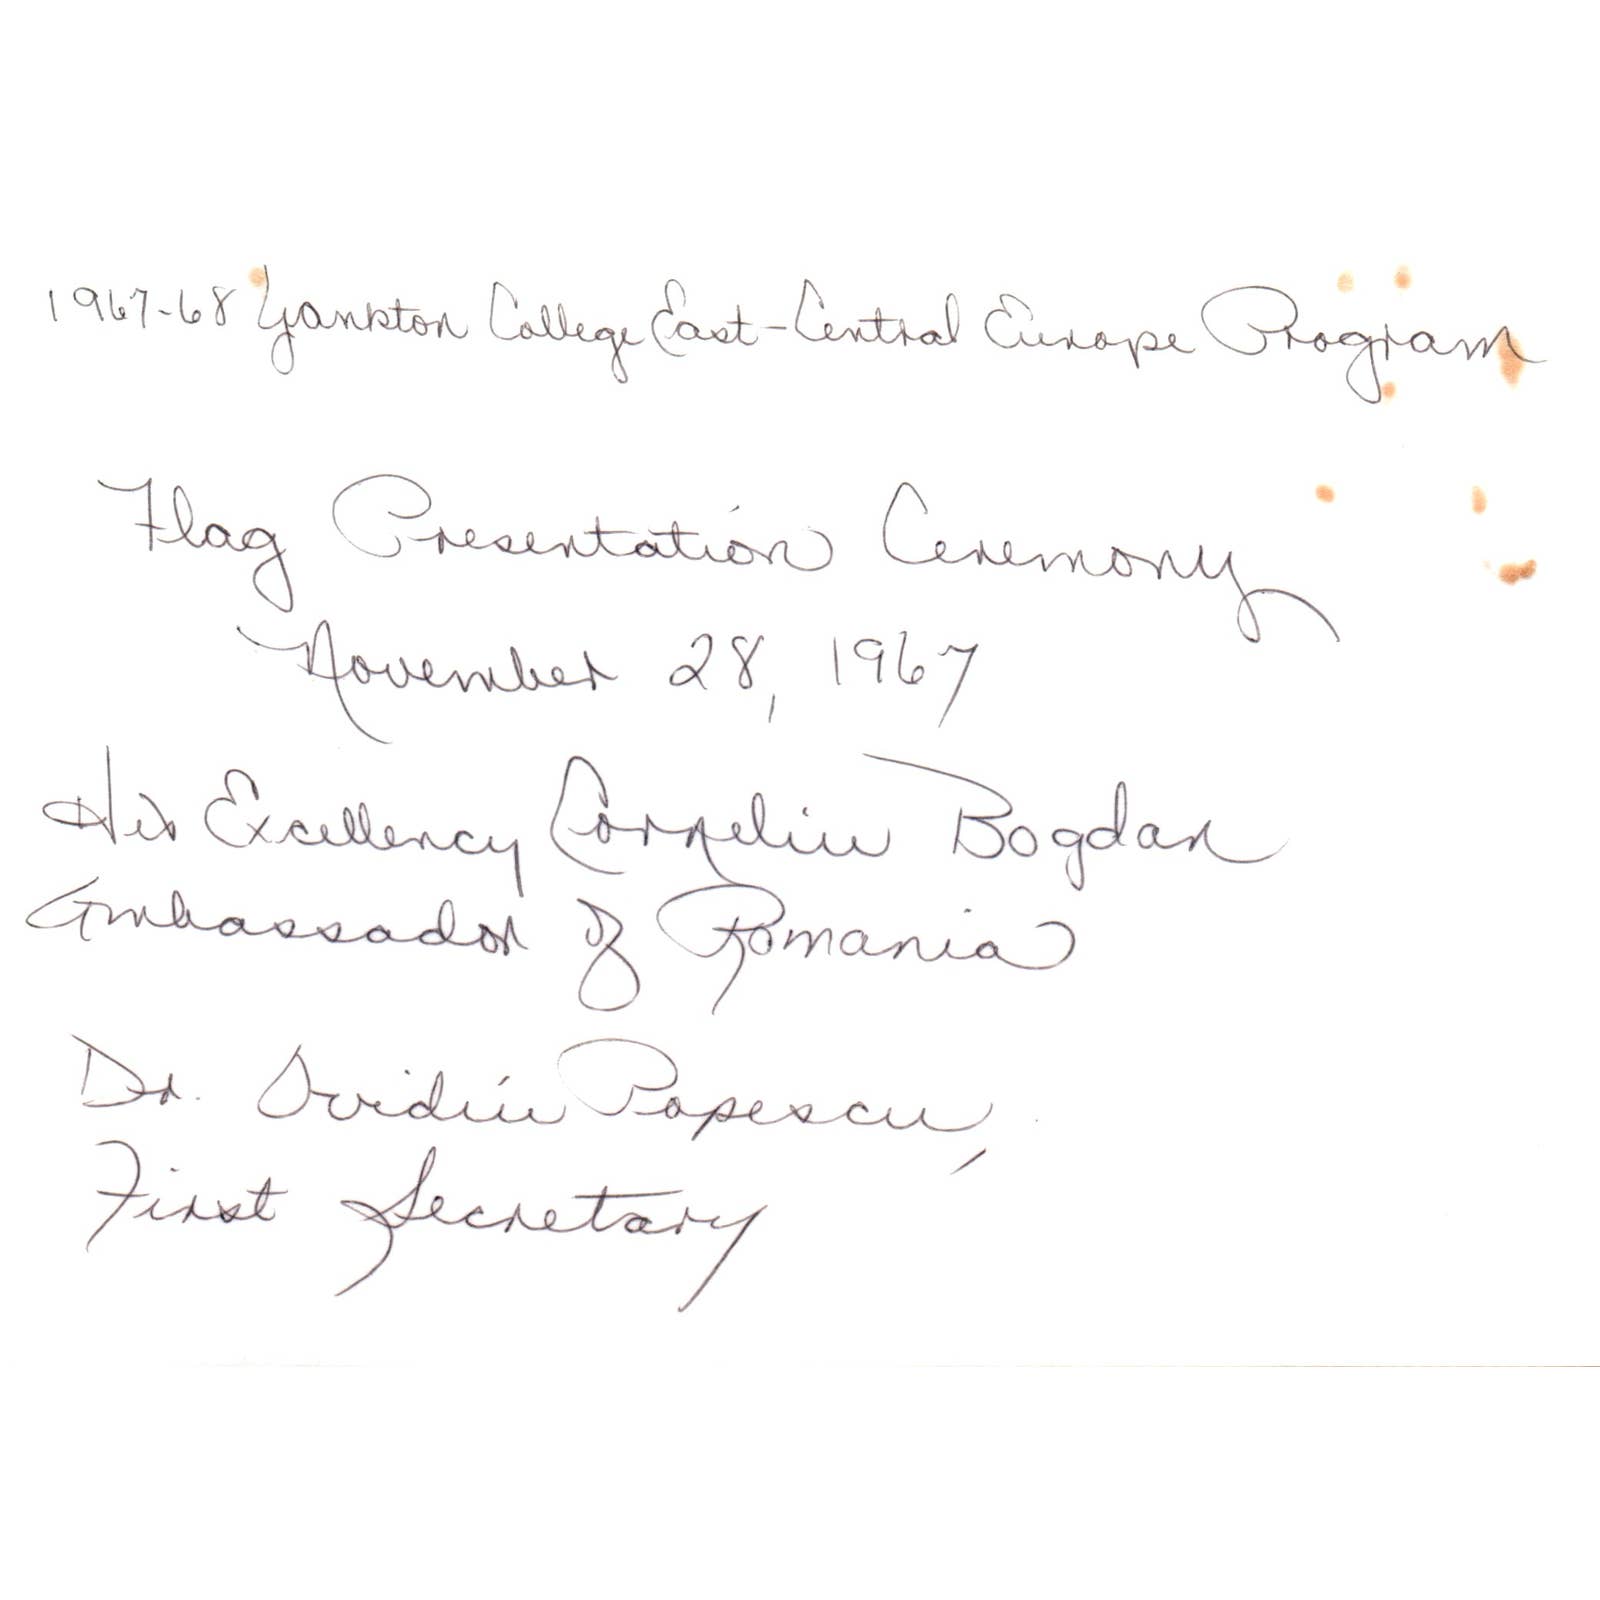 1967-68 Yankton College East-Central Europe Program
Flag Presentation Ceremony
November 28, 1967
His Excellency Corneliu Bogdan
Ambassador of Romania
Dr. Ovidiu Popescu,
First Secretary